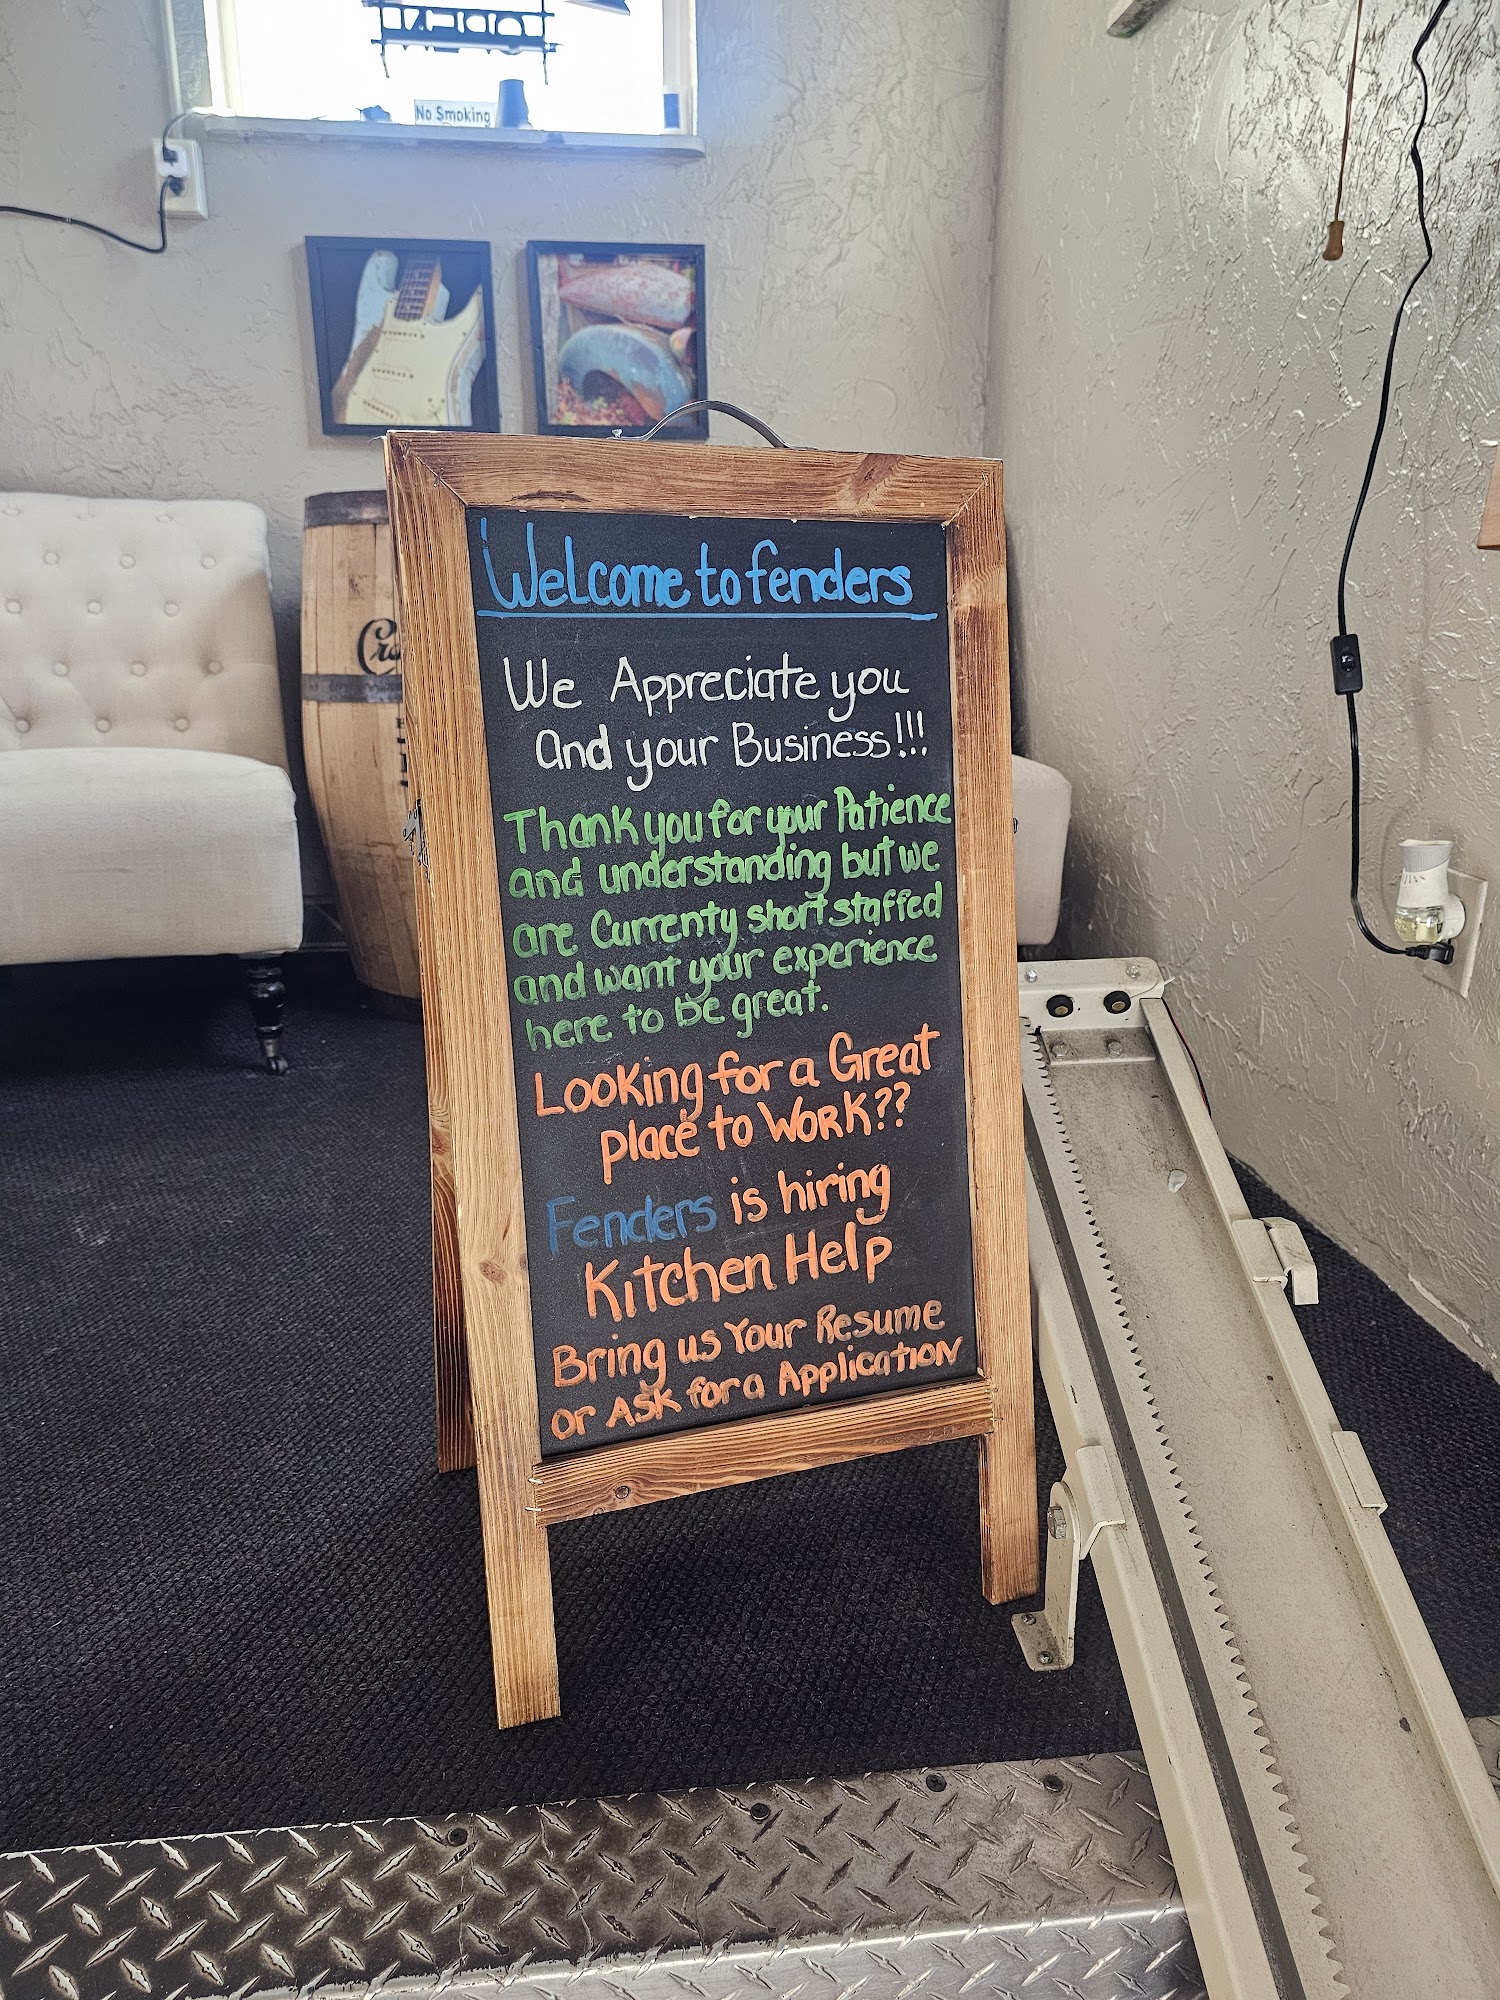 No Smoking
Welcome to fenders
We Appreciate you
and your Business!!!
Thank you for your Patience
and understanding but we
are Currenty short staffed
and want your experience
here to be great.
Looking for a Great
place to Work??
Fenders is hiring
Kitchen Help
Bring us Your Resume
or Ask for a Application